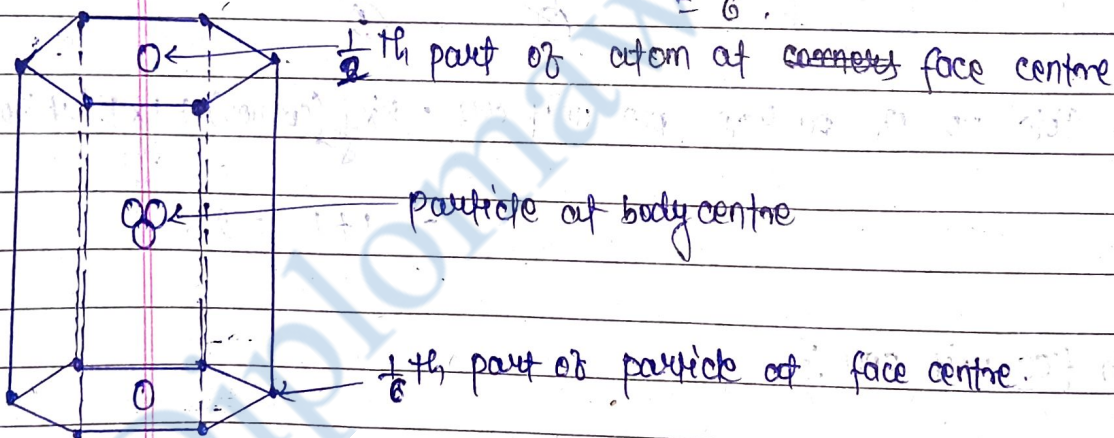 = 6.
1/2 th part of atom at corners face centre
particle at body centre
1/6 th part of particle at face centre.
Diplomaw